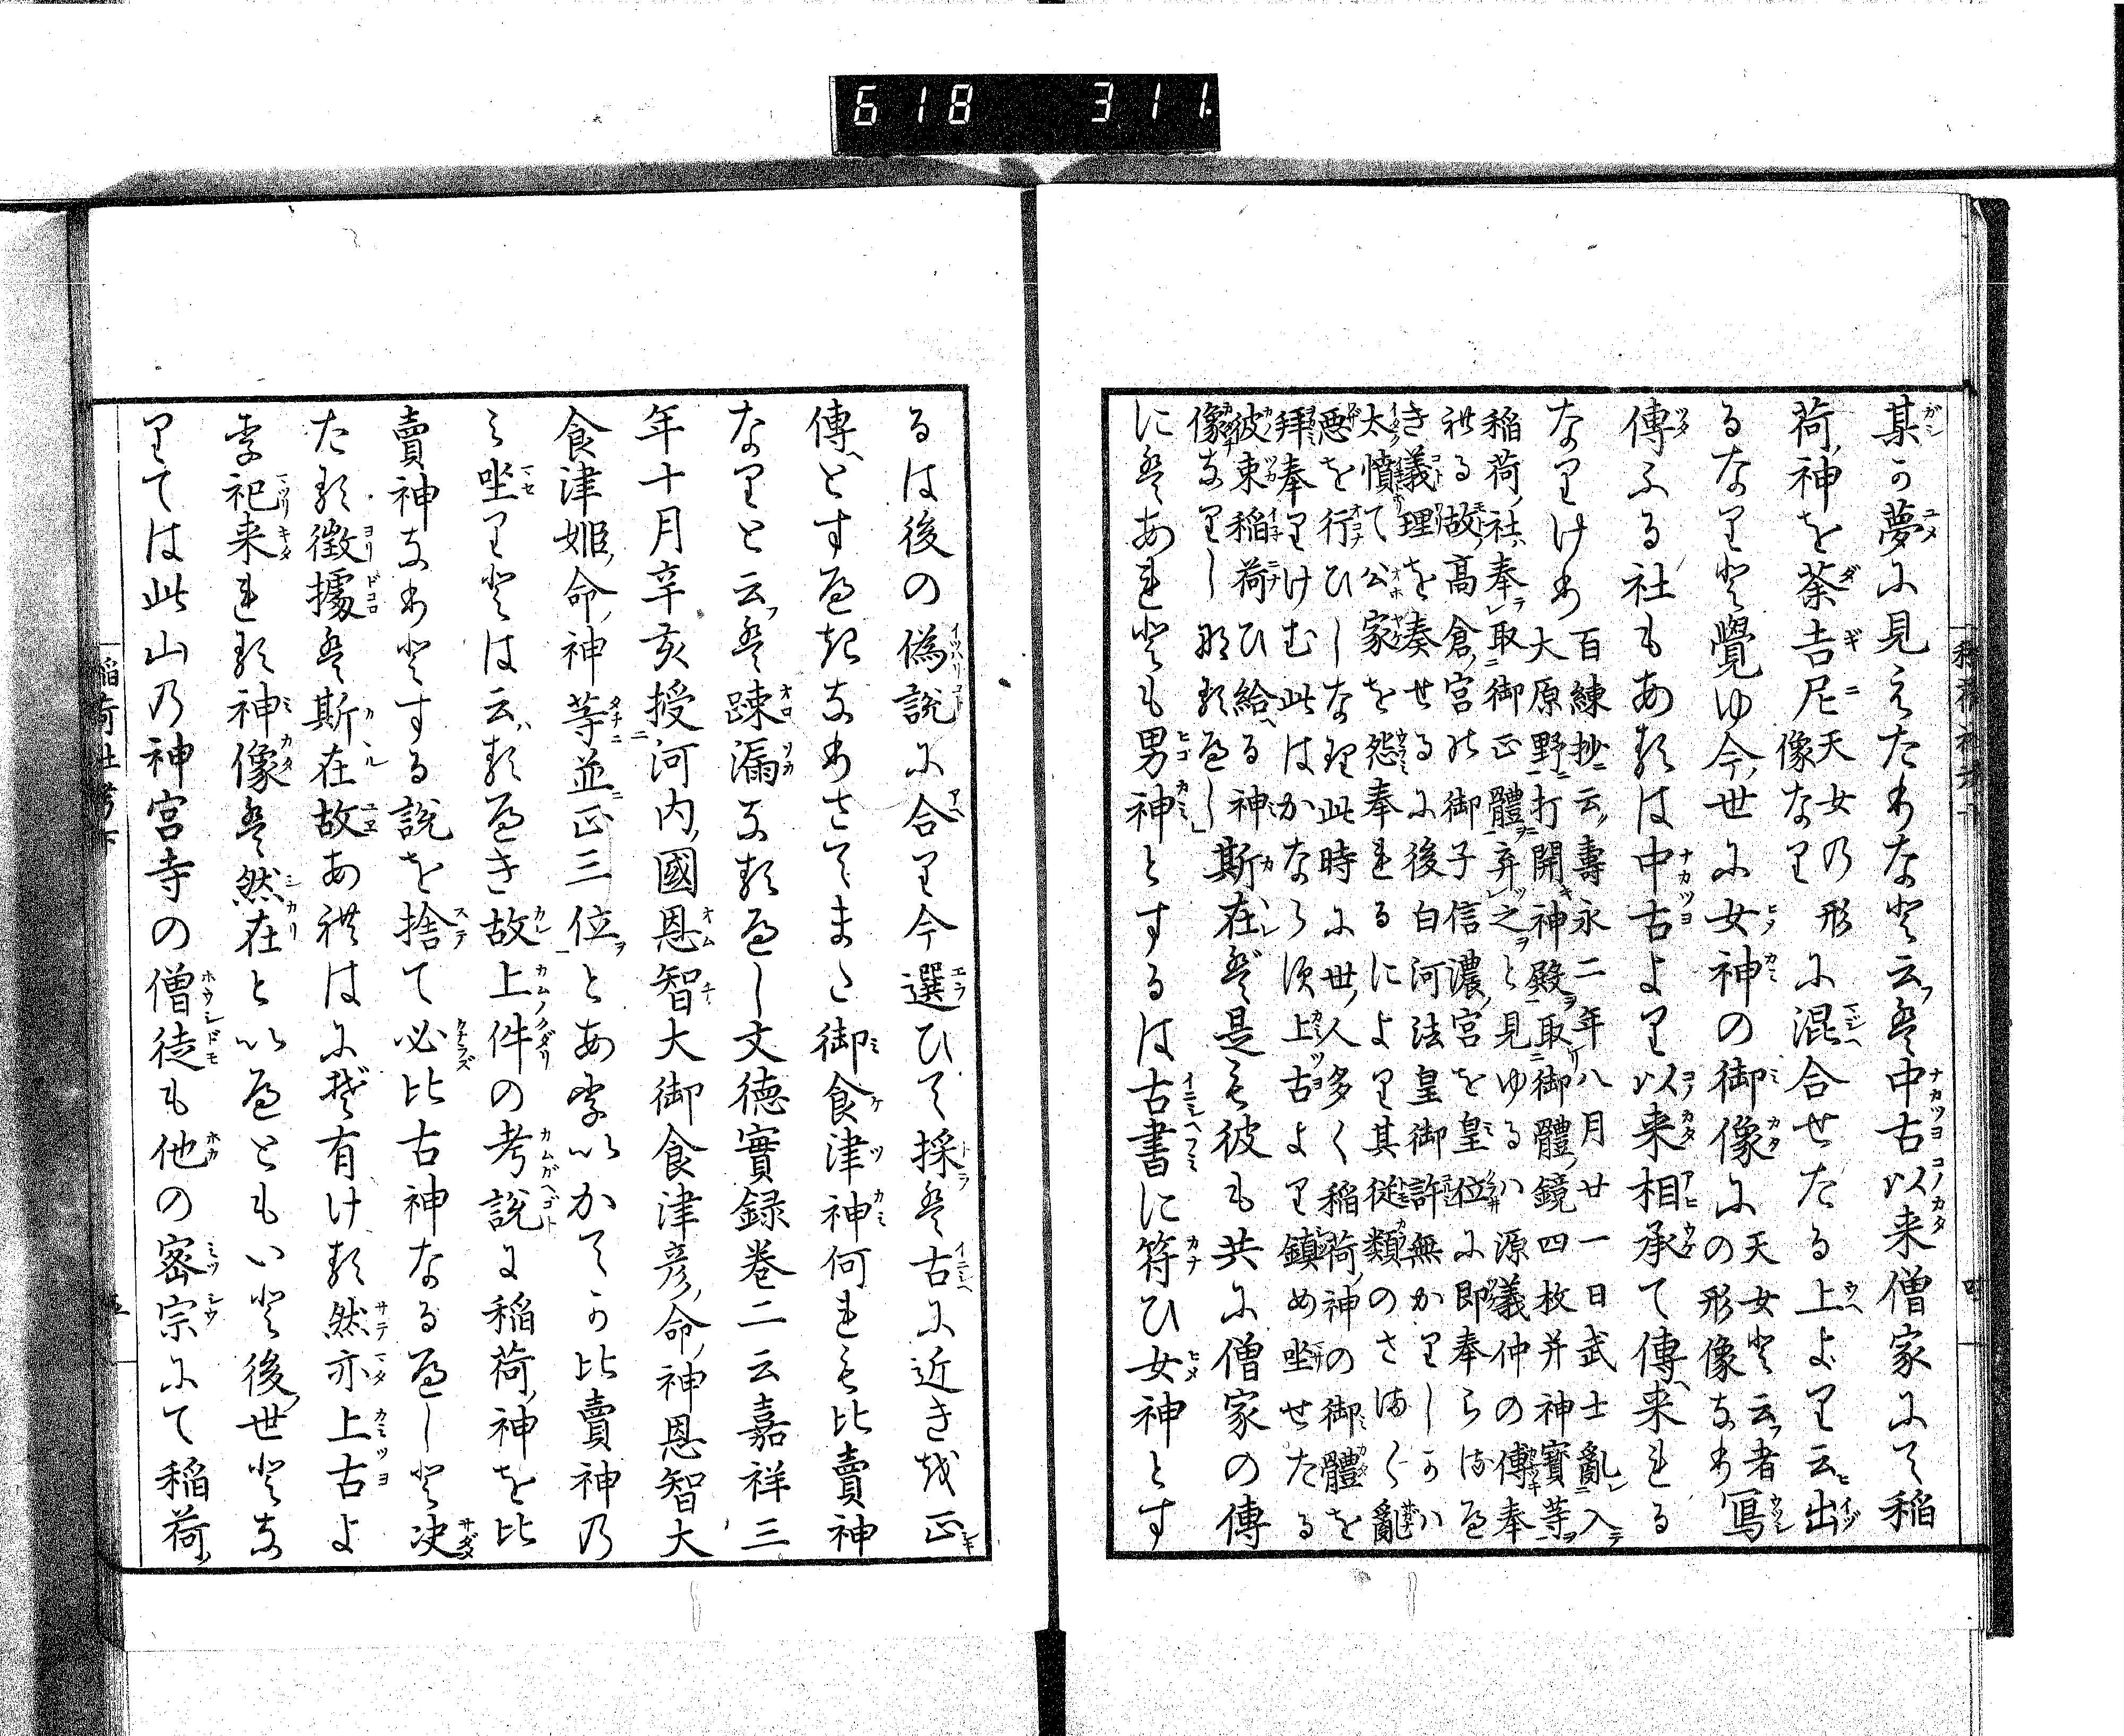 618 311
某か夢に見えたりなど云フは中古以来僧家にて稲
荷ノ神を荼吉尼天女乃形像なりに混合せたる上より云ヒ出
るなりと覺ゆ今ノ世に女神の御像に天女と云フ者の形像なり寫
傳ふる社もあるは中古より以来相承て傳ヘ来れる
なりけり百練抄ニ云ク壽永二年八月廿一日武士亂ニ入テ
大原野ニ打開キ神殿ヲ取ニ御體ノ鏡四枚并神寶等ヲ
稲荷ノ社ハ奉ラレ取ニ御正體ヲ弃ツ之ヲと見ゆるハ源ノ義仲の傳奉
れる故ノ高倉ノ宮の御子信濃ノ宮を皇位に即奉らむべ
き義理を奏せるに後白河法皇御許無かりしかハ
太憤て公家を怨奉れるによりて其從類のさばく亂
惡を行ひしなり此時に世ノ人多く稲荷ノ神の御體を
拜奉りけむ此はかならず上古より鎮め坐せたる
彼ノ束稲荷ひ給ヘる神像なりしなるべし斯在ば是も彼も共に僧家の傳
には あれども男神とするは古書に符ひ女神とす
るは後の偽說に合り今選ひて採は古に近き故正
傳ヘとすべきなりさてまた御食津神何れも比賣神
なりと云フは踈漏なるべし文徳實録巻二云嘉祥三
年十月辛亥授ニ河内ノ國恩智大御食津彦ノ命ノ神恩智大
食津姫ノ命ノ神等並ニ正三位ヲとあるいかてか比賣神乃
ミ坐りとは云ハるべき故上件の考說に稲荷ノ神を比
賣神なりとする說を捨て必比古神なるべしと决
たる徴據は斯在故あればにぞ有ける然亦上古よ
り祀来れる神像は然在といへともいと後ノ世とな
りては此山乃神宮寺の僧徒も他の密宗にて稲荷ノ
稲荷社考下